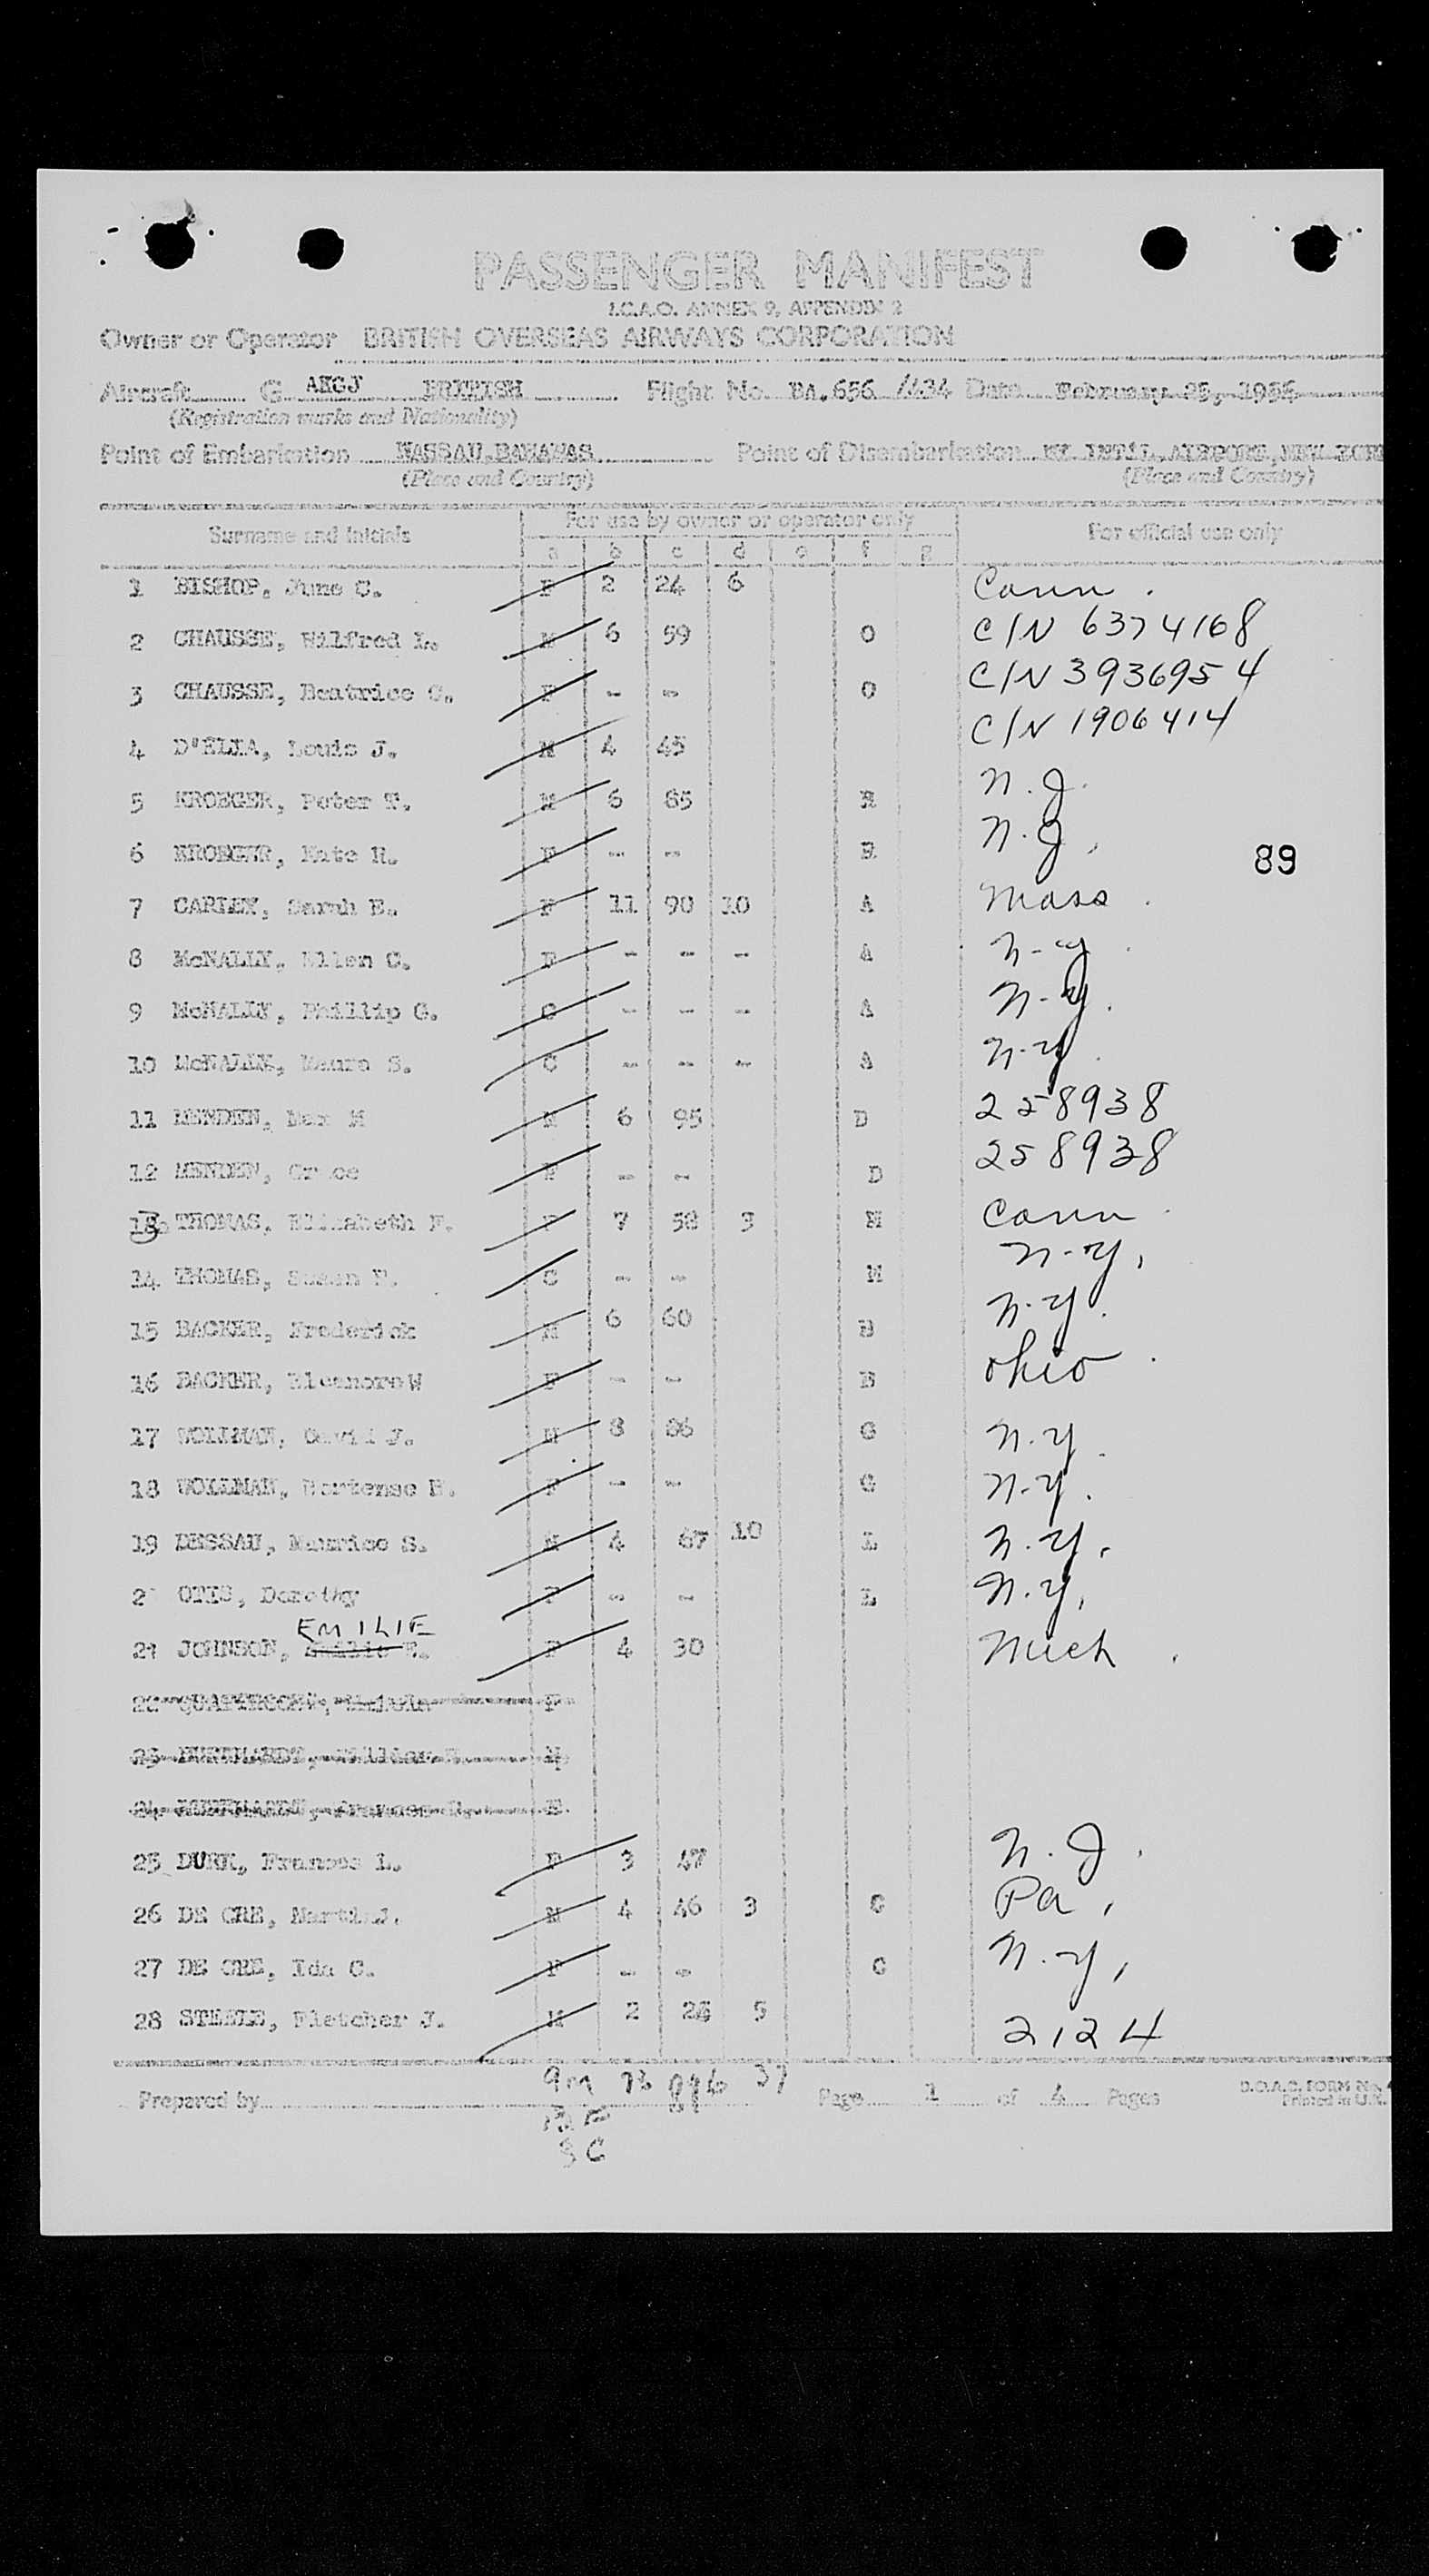 PASSENGER MANIFEST
I.C.A.O. ANNEX 9, APPENDIX 2
Owner or Operator BRITISH OVERSEAS AIRWAYS CORPORATION
Aircraft G AKGJ BRITISH Flight No. BA.656 /434 Date February 25, 1955
(Registration marks and Nationality)
Point of Embarkation NASSAU, BAHAMAS Point of Disembarkation NY INT'L. AIRPORT, NEW YORK
(Place and Country) (Place and Country)
Surname and Initials For use by owner or operator only For official use only
a b c d e f g
1 BISHOP, June C. F 2 24 6 Conn.
2 CHAUSSE, Wilfred L. M 6 59 O C/N 6374168
3 CHAUSSE, Beatrice C. F - - O C/N 3936954
4 D'ELIA, Louis J. M 4 45 C/N 1906414
5 KROEGER, Peter T. M 6 65 R N.J.
6 KROEGER, Kate H. F - - R N.J.
89
7 CARLEY, Sarah E. F 11 90 10 A Mass.
8 McNALLY, Ellen C. F - - - A N-Y.
9 McNALLY, Phillip G. C - - - A N-Y.
10 McNALLY, Maura S. C - - - A N-Y.
11 MENDEN, M 6 95 D 258938
12 MENDEN, Grace F - - D 258938
13 THOMAS, Elizabeth F. F 7 58 3 M Conn.
14 THOMAS, Susan C - - M N-Y.
15 BACKER, Frederick M 6 60 B N.Y.
16 BACKER, Eleanore W F - - B Ohio.
17 WOLLMAN, J. M 8 G N.Y.
18 WOLLMAN, Hortense F - - G N.Y.
19 DESSAU, Maurice S. M 4 67 10 L N.Y.
2 OTIS, Dorothy F - - L N.Y.
EMILIE
21 JOHNSON, F 4 30 Mich.
22 F
23 M
24 F
25 DURK, Frances L. F 3 47 N.J.
26 DE CRE, J. M 4 46 3 C Pa.
27 DE CRE, Ida C. F - - C N.Y.
28 STEELE, Fletcher J. M 2 5 2124
9M 37
Prepared by Page 1 of 4 Pages B.O.A.C. FORM No.
Printed in U.K.